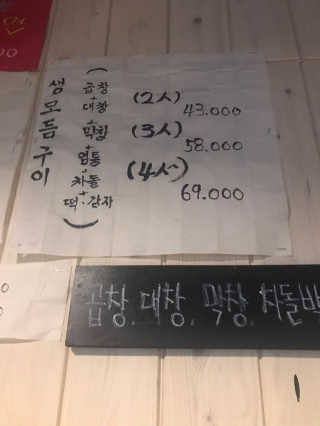 생모듬구이
(곱창
+
대창
+
막창
+
염통
+
차돌
+
떡·감자)
(2人)
43.000
(3人)
58.000
(4人)
69.000
곱창, 대창, 막창, 차돌박